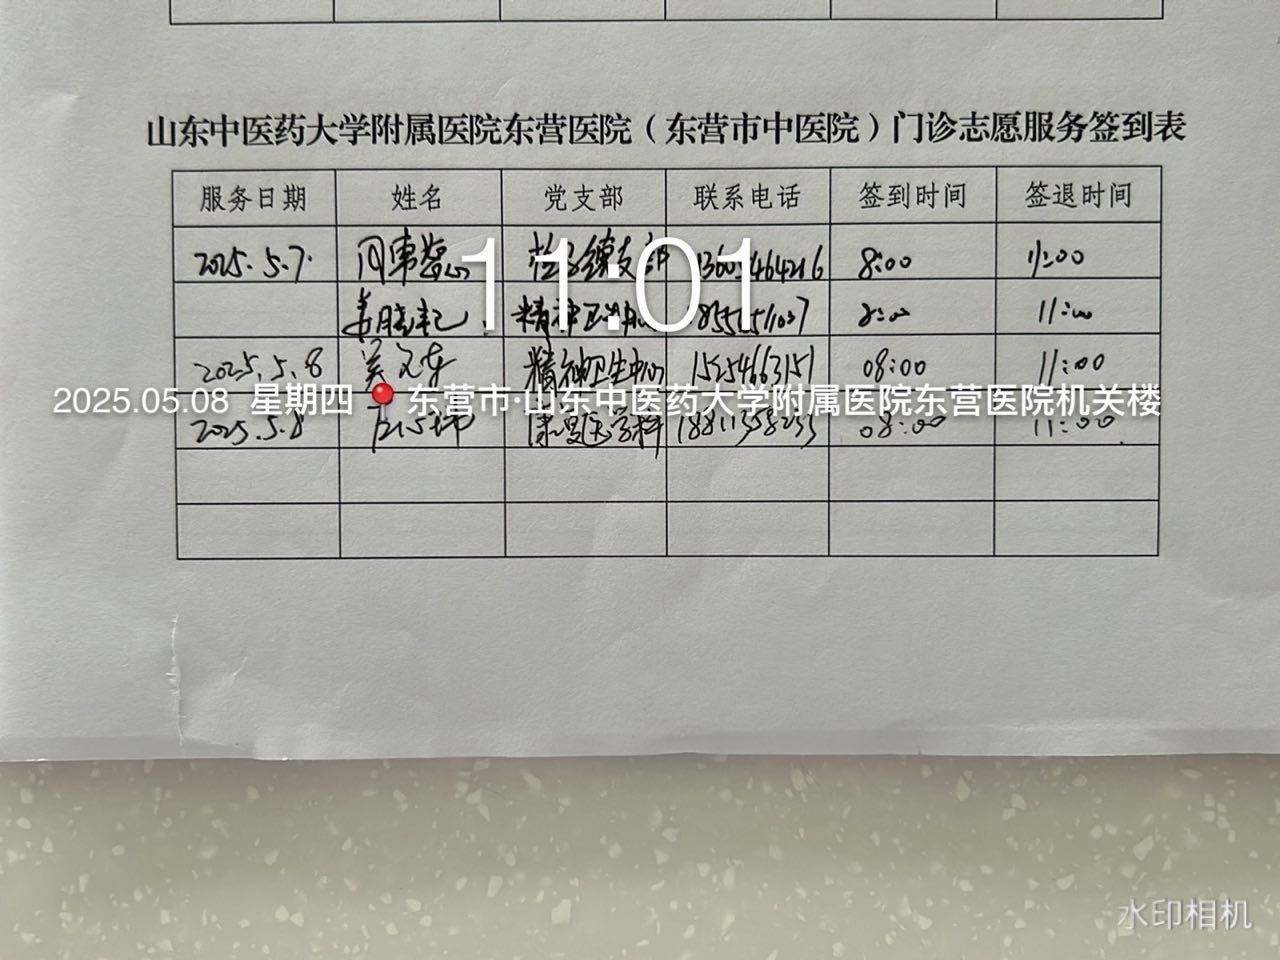 山东中医药大学附属医院东营医院（东营市中医院）门诊志愿服务签到表
服务日期 姓名 党支部 联系电话 签到时间 签退时间
2025.5.7. 支部 8:00 11:00
11:01
精神 8:00 11:00
2025.5.8 吴文东 精神卫生中心 15254663151 08:00 11:00
2025.05.08 星期四 东营市·山东中医药大学附属医院东营医院机关楼
2025.5.8 康复医学科 18811358233 08:00 11:00
水印相机